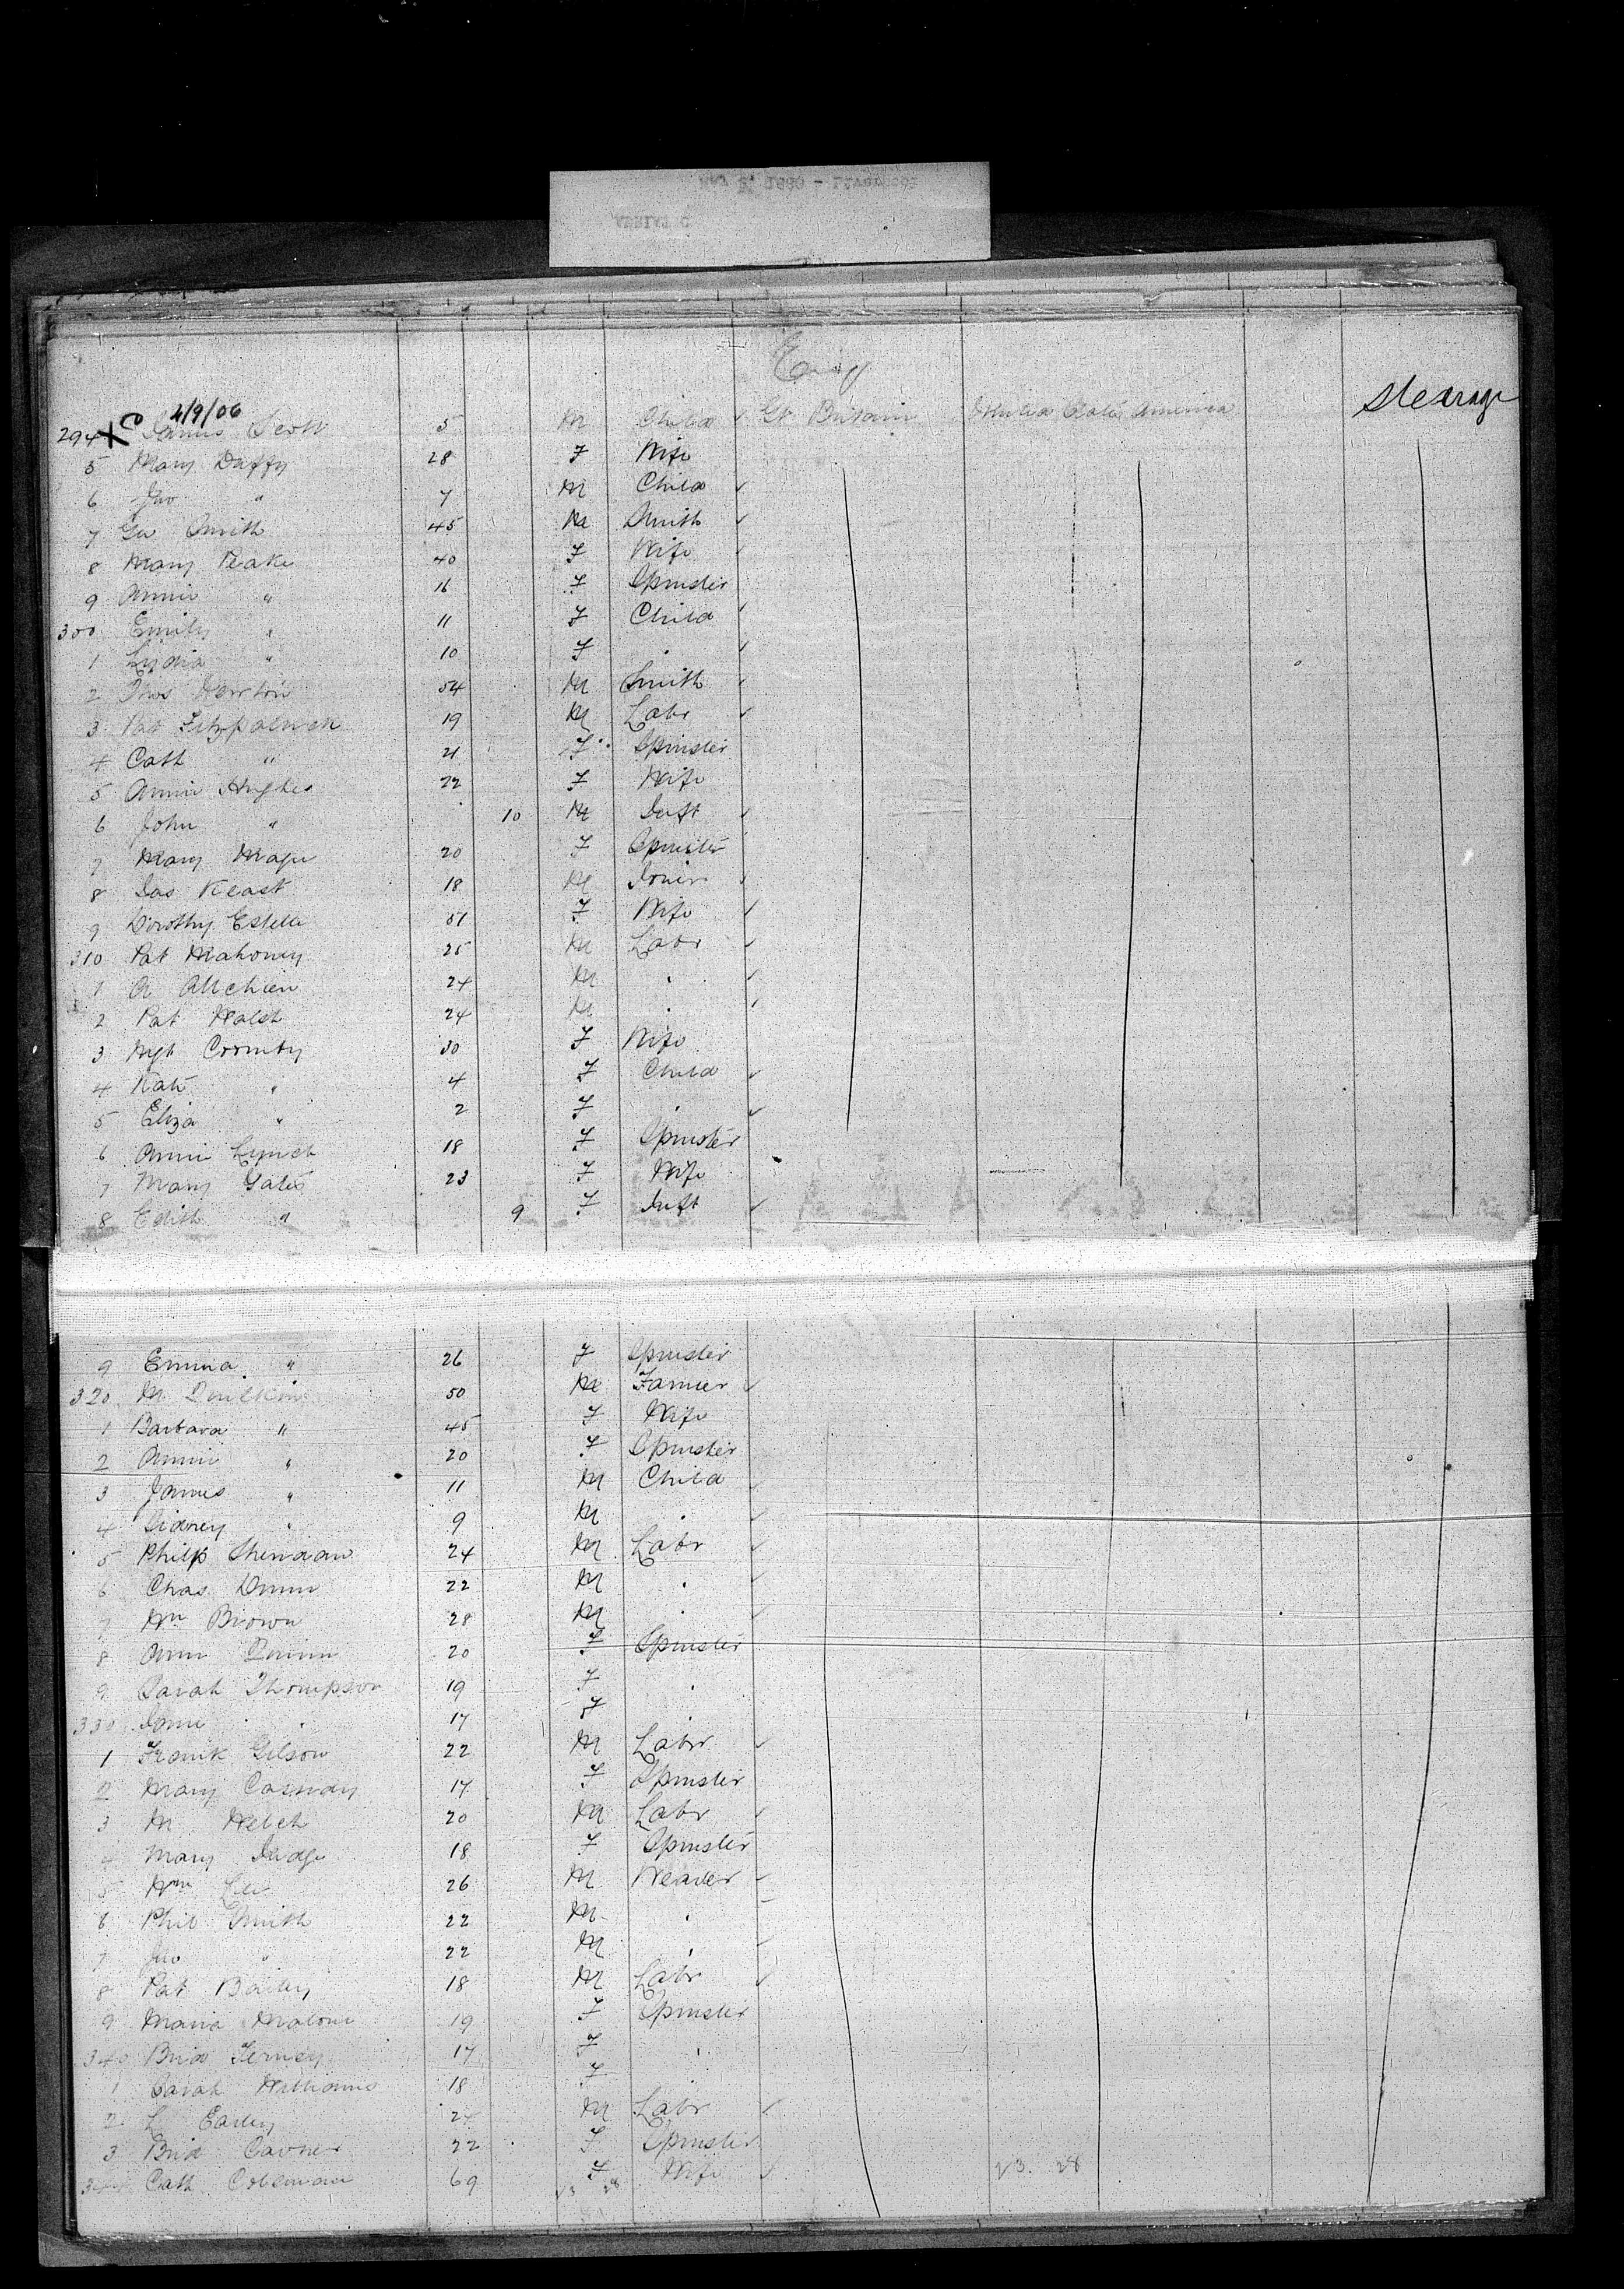 May 3, 1880 - Liverpool
ADRIATIC
Eng
4/9/06
294 X James Scott 5 M Child Gt. Britain United States America Steerage
5 Mary Duffy 28 F Wife
6 Jno " 7 M Child
7 Geo Smith 45 M Smith
8 Mary Peake 40 F Wife
9 Annie " 16 F Spinster
300 Emily " 11 F Child
1 Lydia " 10 F "
2 Thos 54 M Smith
3 Pat Fitzpatrick 19 M Labr
4 Cath " 21 F Spinster
5 Annie Hughes 22 F Wife
6 John " 10 M Inft
7 Mary Magee 20 F Spinster
8 Jas Keast 18 M Joiner
9 Dorothy Estelle 51 F Wife
310 Pat Mahoney 25 M Labr
1 A Aitchison 24 M "
2 Pat Walsh 24 M "
3 Mgt Cormby 30 F Wife
4 Kate " 4 F Child
5 Eliza " 2 F "
6 Annie Lynch 18 F Spinster
7 Mary Gates 23 F Wife
8 Edith " 9 F Inft
9 Emma " 26 F Spinster
320 M 50 M Farmer
1 Barbara " 45 F Wife
2 Annie " 20 F Spinster
3 James " 11 M Child
4 Sidney " 9 M "
5 Philip Sheridan 24 M Labr
6 Chas Dunn 22 M "
7 Wm Brown 28 M "
8 Ann Quinn 20 F Spinster
9 Sarah Thompson 19 F "
330 Jane " 17 F "
1 Frank Gilson 22 M Labr
2 Mary Cassidy 17 F Spinster
3 M Welch 20 M Labr
4 Mary Judge 18 F Spinster
5 Wm Lee 26 M Weaver
6 Phil Smith 22 M "
7 Jno " 22 M "
8 Pat Bailey 18 M Labr
9 Maria Malone 19 F Spinster
340 Brid Tierney 17 F "
1 Sarah Williams 18 F "
2 L Earley 24 M Labr
3 Brid 22 F Spinster
344 Cath Coleman 69 F Wife
23 28 23 28